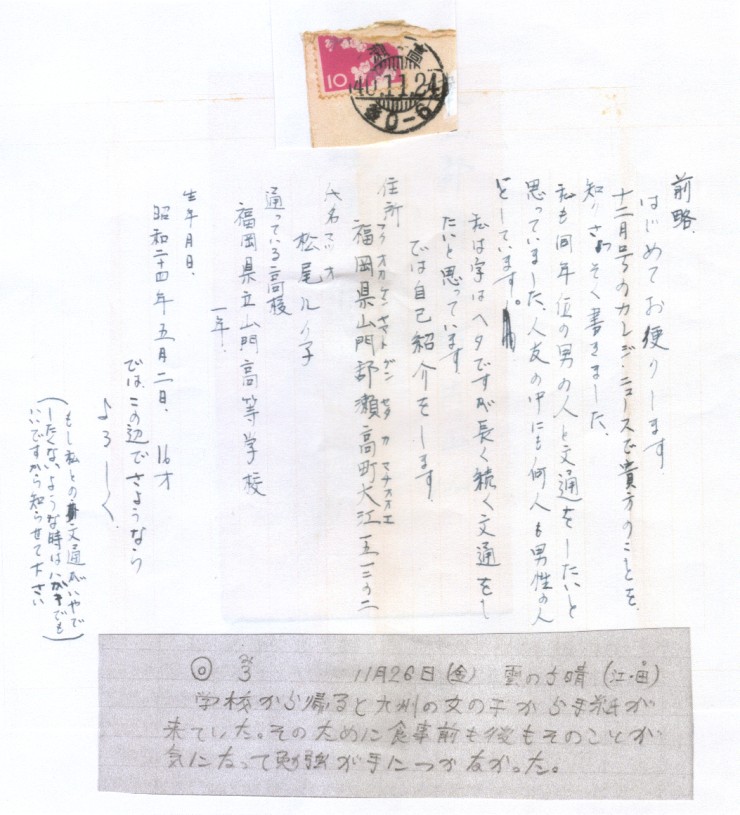 10
40.11.24
前略、
はじめてお便りします。
十二月号のカレッジ・ニュースで貴方のことを
知りさっそく書きました。
私も同年位の男の人と文通をしたいと
思っていました、人友の中にも何人も男性の人
としています。
私は字はヘタですが長く続く文通をし
たいと思っています
では自己紹介をします
住所
福岡県山門郡瀬高町大江一五一二の二
氏名 マツオ
松尾ルイ子
通っている高校
福岡県立山門高等学校
一年、
生年月日、
昭和二十四年五月二日、 16才
では、この辺でさようなら
よろしく、
(もし私との文通がいやで
したくないような時はハガキでも
いいですから知らせて下さい)
◎ 3 11月26日(金) 雲のち晴 (江・画)
学校から帰ると九州の女の子から手紙が
来ていた。そのために食事前も後もそのことが
気になって勉強が手につかなかった。